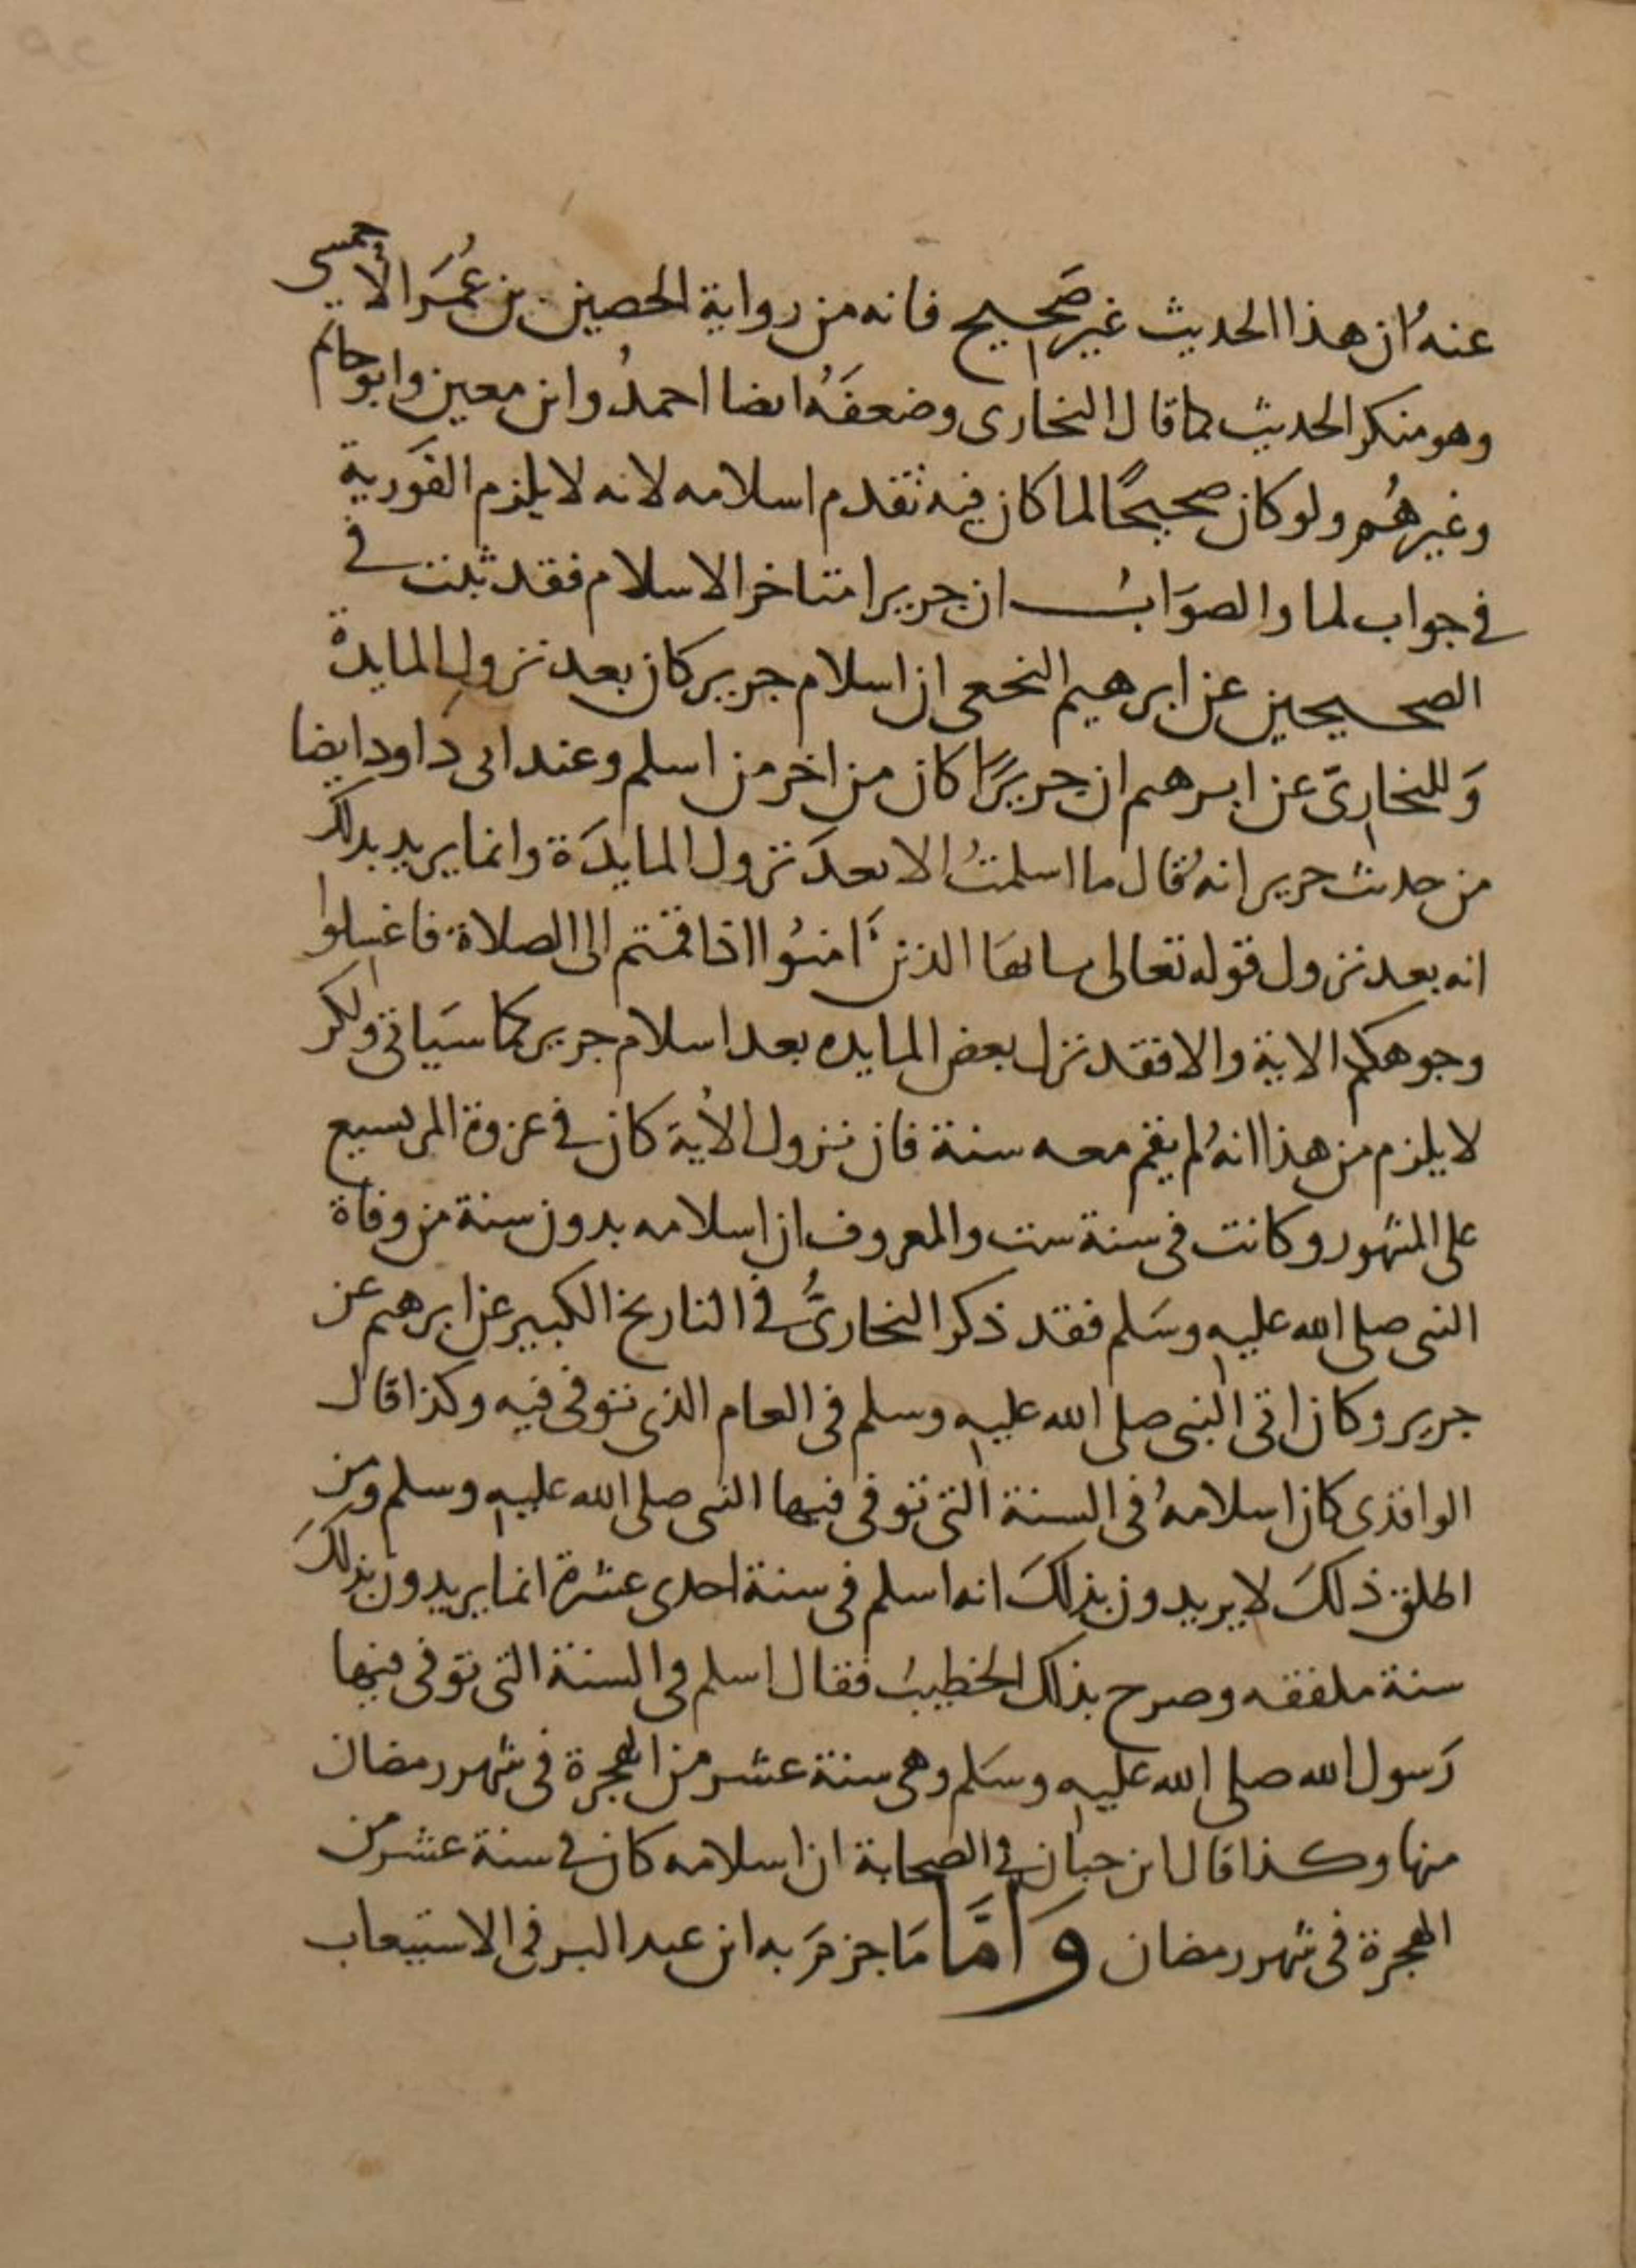 عنهُ ان هذا الحديث غير صَحيح فانه من رواية الحصين بن عُمَر الأحمسى
وهو منكر الحديث كما قال البخارى وضعفَهُ ايضا احمدُ وابن معين وابو حاتم
وغيرهُم ولو كان صحيحًا لما كان فيه تقدم اسلامه لانه لا يلزم الفَورية
فى جواب لما والصوَابُ ان جريرا متاخر الاسلام فقد ثبت فى
الصحيحين عن ابرهيم النخعى ان اسلام جرير كان بعد نزول المايدة
وَللبخارىّ عن ابرهيم ان جريرًا كان من اخر من اسلم وعند ابى داود ايضا
من حديث جرير انهُ قال ما اسلمتُ الا بعدَ نزول المايدَة وانما يريد بذلك
انه بعد نزول قوله تعالى يايهَا الذين آمنُوا اذا قمتم الى الصلاة فاغسلوا
وجوهكم الاية والا فقد نزل بعض المايده بعد اسلام جرير كما سيَاتى ولكن
لا يلزم من هذا انهُ لم يقم معه سنة فان نزول الأية كان فى غزوة المريسيع
على المشهور وكانت فى سنة ست والمعروف ان اسلامه بدون سنة من وفاة
النبى صلى الله عليه وسَلم فقد ذكر البخارىُّ فى التاريخ الكبير عن ابرهيم عن
جرير وكان اتى النبى صلى الله عليه وسلم فى العام الذى توفى فيه وكذا قال
الواقدى كان اسلامهُ فى السنة التى توفى فيها النبى صلى الله عليه وسلم ومن
اطلق ذلكَ لا يريدون بذلكَ انه اسلم فى سنة احدى عشرة انما يريدون بذلكَ
سنة ملفقه وصرح بذلك الخطيبُ فقال اسلم فى السنة التى توفى فيها
رَسول الله صلى الله عليه وسَلم وهى سنة عشر من الهجرة فى شهر رمضان
منها وكذا قال ابن حبان فى الصحابة ان اسلامه كان فى سنة عشر من
الهجرة فى شهر رمضان وَامَّا مَا جزمَ به ابن عبد البر فى الاستيعاب